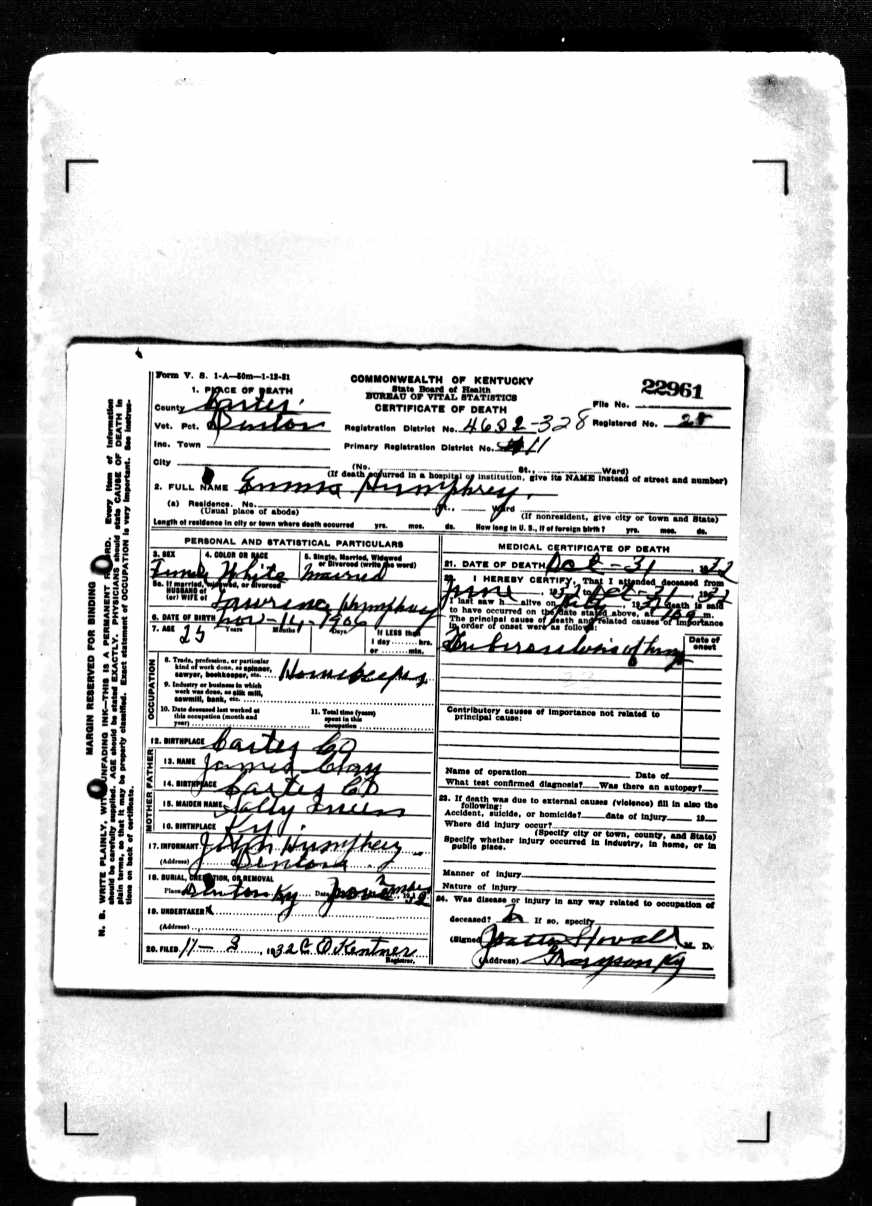 Form V. S. 1-A—50m—1-12-31
COMMONWEALTH OF KENTUCKY
State Board of Health
BUREAU OF VITAL STATISTICS
CERTIFICATE OF DEATH
22961
File No.
Registered No. 28
1. PLACE OF DEATH
County Carter
Vot. Pct. Denton
Inc. Town
City
Registration District No. 4632-328
Primary Registration District No. 11
(No. St., Ward)
(If death occurred in a hospital or institution, give its NAME instead of street and number)
2. FULL NAME Emma Humphrey.
(a) Residence. No. St., Ward
(Usual place of abode) (If nonresident, give city or town and State)
Length of residence in city or town where death occurred yrs. mos. ds. How long in U. S., if of foreign birth? yrs. mos. ds.
PERSONAL AND STATISTICAL PARTICULARS
3. SEX 4. COLOR OR RACE 5. Single, Married, Widowed
or Divorced (write the word)
Female White Married
5a. If married, widowed, or divorced
HUSBAND of
(or) WIFE of
Humphrey
6. DATE OF BIRTH Nov-14-1906
7. AGE 25 Years Months Days If LESS than
1 day hrs.
or min.
OCCUPATION
8. Trade, profession, or particular
kind of work done, as spinner,
sawyer, bookkeeper, etc. Housekeeper
9. Industry or business in which
work was done, as silk mill,
sawmill, bank, etc.
10. Date deceased last worked at
this occupation (month and
year)
11. Total time (years)
spent in this
occupation
12. BIRTHPLACE Carter Co
FATHER
13. NAME James Clay
14. BIRTHPLACE Carter Co
MOTHER
15. MAIDEN NAME Sally
16. BIRTHPLACE Ky.
17. INFORMANT Humphrey
(Address) Denton
18. BURIAL, CREMATION, OR REMOVAL
Place Denton Ky Date
19. UNDERTAKER
(Address)
20. FILED 11-3, 1932 C O Kentner
Registrar.
MEDICAL CERTIFICATE OF DEATH
21. DATE OF DEATH Oct-31 1932
22. I HEREBY CERTIFY, That I attended deceased from
June, 1932 to Oct-31, 1932
I last saw h alive on , 19 death is said
to have occurred on the date stated above, at m.
The principal cause of death and related causes of importance
in order of onset were as follows:
Date of
onset
Tuberculosis of lungs
Contributory causes of importance not related to
principal cause:
Name of operation Date of
What test confirmed diagnosis? Was there an autopsy?
23. If death was due to external causes (violence) fill in also the
following:
Accident, suicide, or homicide? date of injury 19
Where did injury occur?
(Specify city or town, county, and State)
Specify whether injury occurred in industry, in home, or in
public place.
Manner of injury
Nature of injury
24. Was disease or injury in any way related to occupation of
deceased? If so, specify
(Signed) Stovall M. D.
(Address) Grayson Ky
MARGIN RESERVED FOR BINDING
N. B. WRITE PLAINLY, WITH UNFADING INK—THIS IS A PERMANENT RECORD. Every item of information
should be carefully supplied. AGE should be stated EXACTLY. PHYSICIANS should state CAUSE OF DEATH in
plain terms, so that it may be properly classified. Exact statement of OCCUPATION is very important. See instruc-
tions on back of certificate.